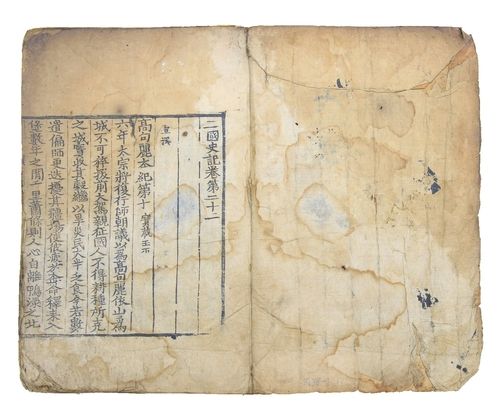 二國史記卷第二十二
宣撰
高句麗本紀第十 寶藏王下
六年太宗將復行師朝議以爲高句麗依山爲
城不可猝拔前大駕親征國人不得耕種所克
之城實收其穀繼以旱災民大半乏食今若數
遣偏師更迭擾其疆埸使彼疲於奔命釋耒入
堡數年之間千里蕭條則人心自離鴨淥之北